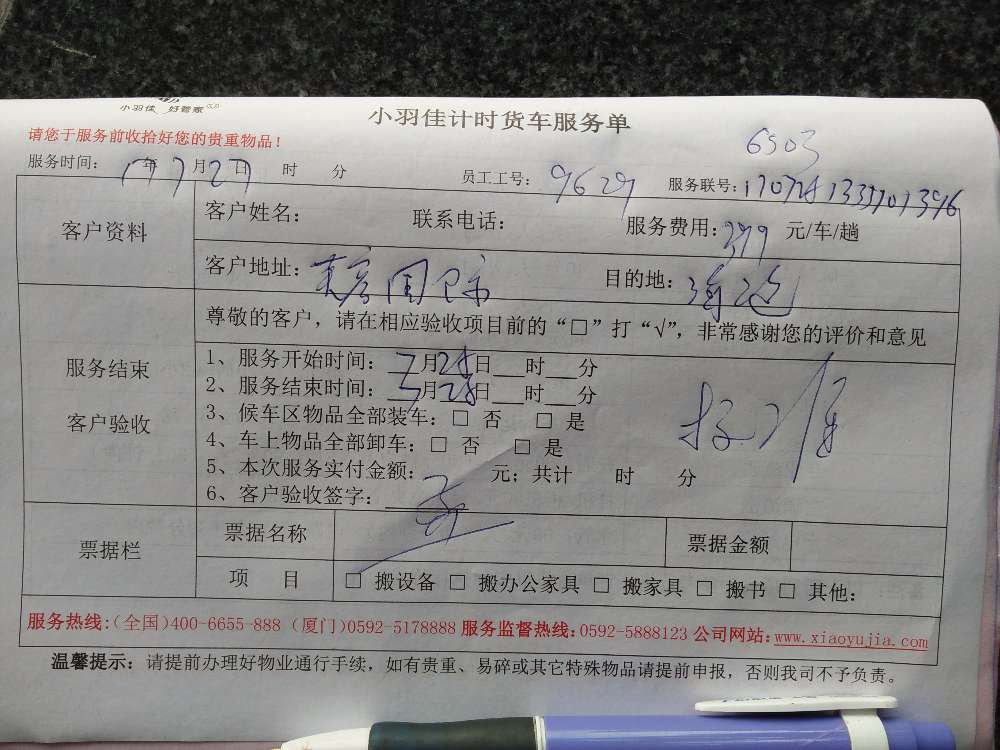 小羽佳 好管家
小羽佳计时货车服务单
请您于服务前收拾好您的贵重物品！
6503
服务时间： 17年7月27日 时 分 员工工号：9629 服务联号：
客户资料
客户姓名： 联系电话： 服务费用：399 元/车/趟
客户地址： 目的地：
服务结束
客户验收
尊敬的客户，请在相应验收项目前的“□”打“√”，非常感谢您的评价和意见
1、服务开始时间：7月28日___时___分
2、服务结束时间：7月28日___时___分
3、候车区物品全部装车：□ 否 □ 是
4、车上物品全部卸车：□ 否 □ 是
5、本次服务实付金额： 元；共计 时 分
6、客户验收签字：
票据栏
票据名称 票据金额
项 目 □ 搬设备 □ 搬办公家具 □ 搬家具 □ 搬书 □ 其他：
服务热线：（全国）400-6655-888 （厦门）0592-5178888 服务监督热线：0592-5888123 公司网站：www.xiaoyujia.com
温馨提示：请提前办理好物业通行手续，如有贵重、易碎或其它特殊物品请提前申报，否则我司不予负责。